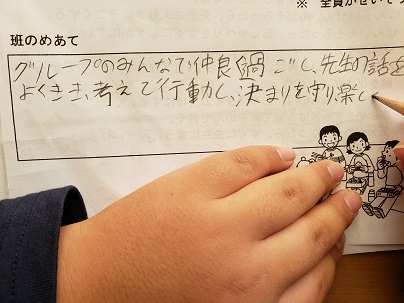 ※ 全員がせいそう
班のめあて
グループのみんなで仲良く過ごし、先生の話を
よくきき、考えて行動し、決まりを守り、楽しく